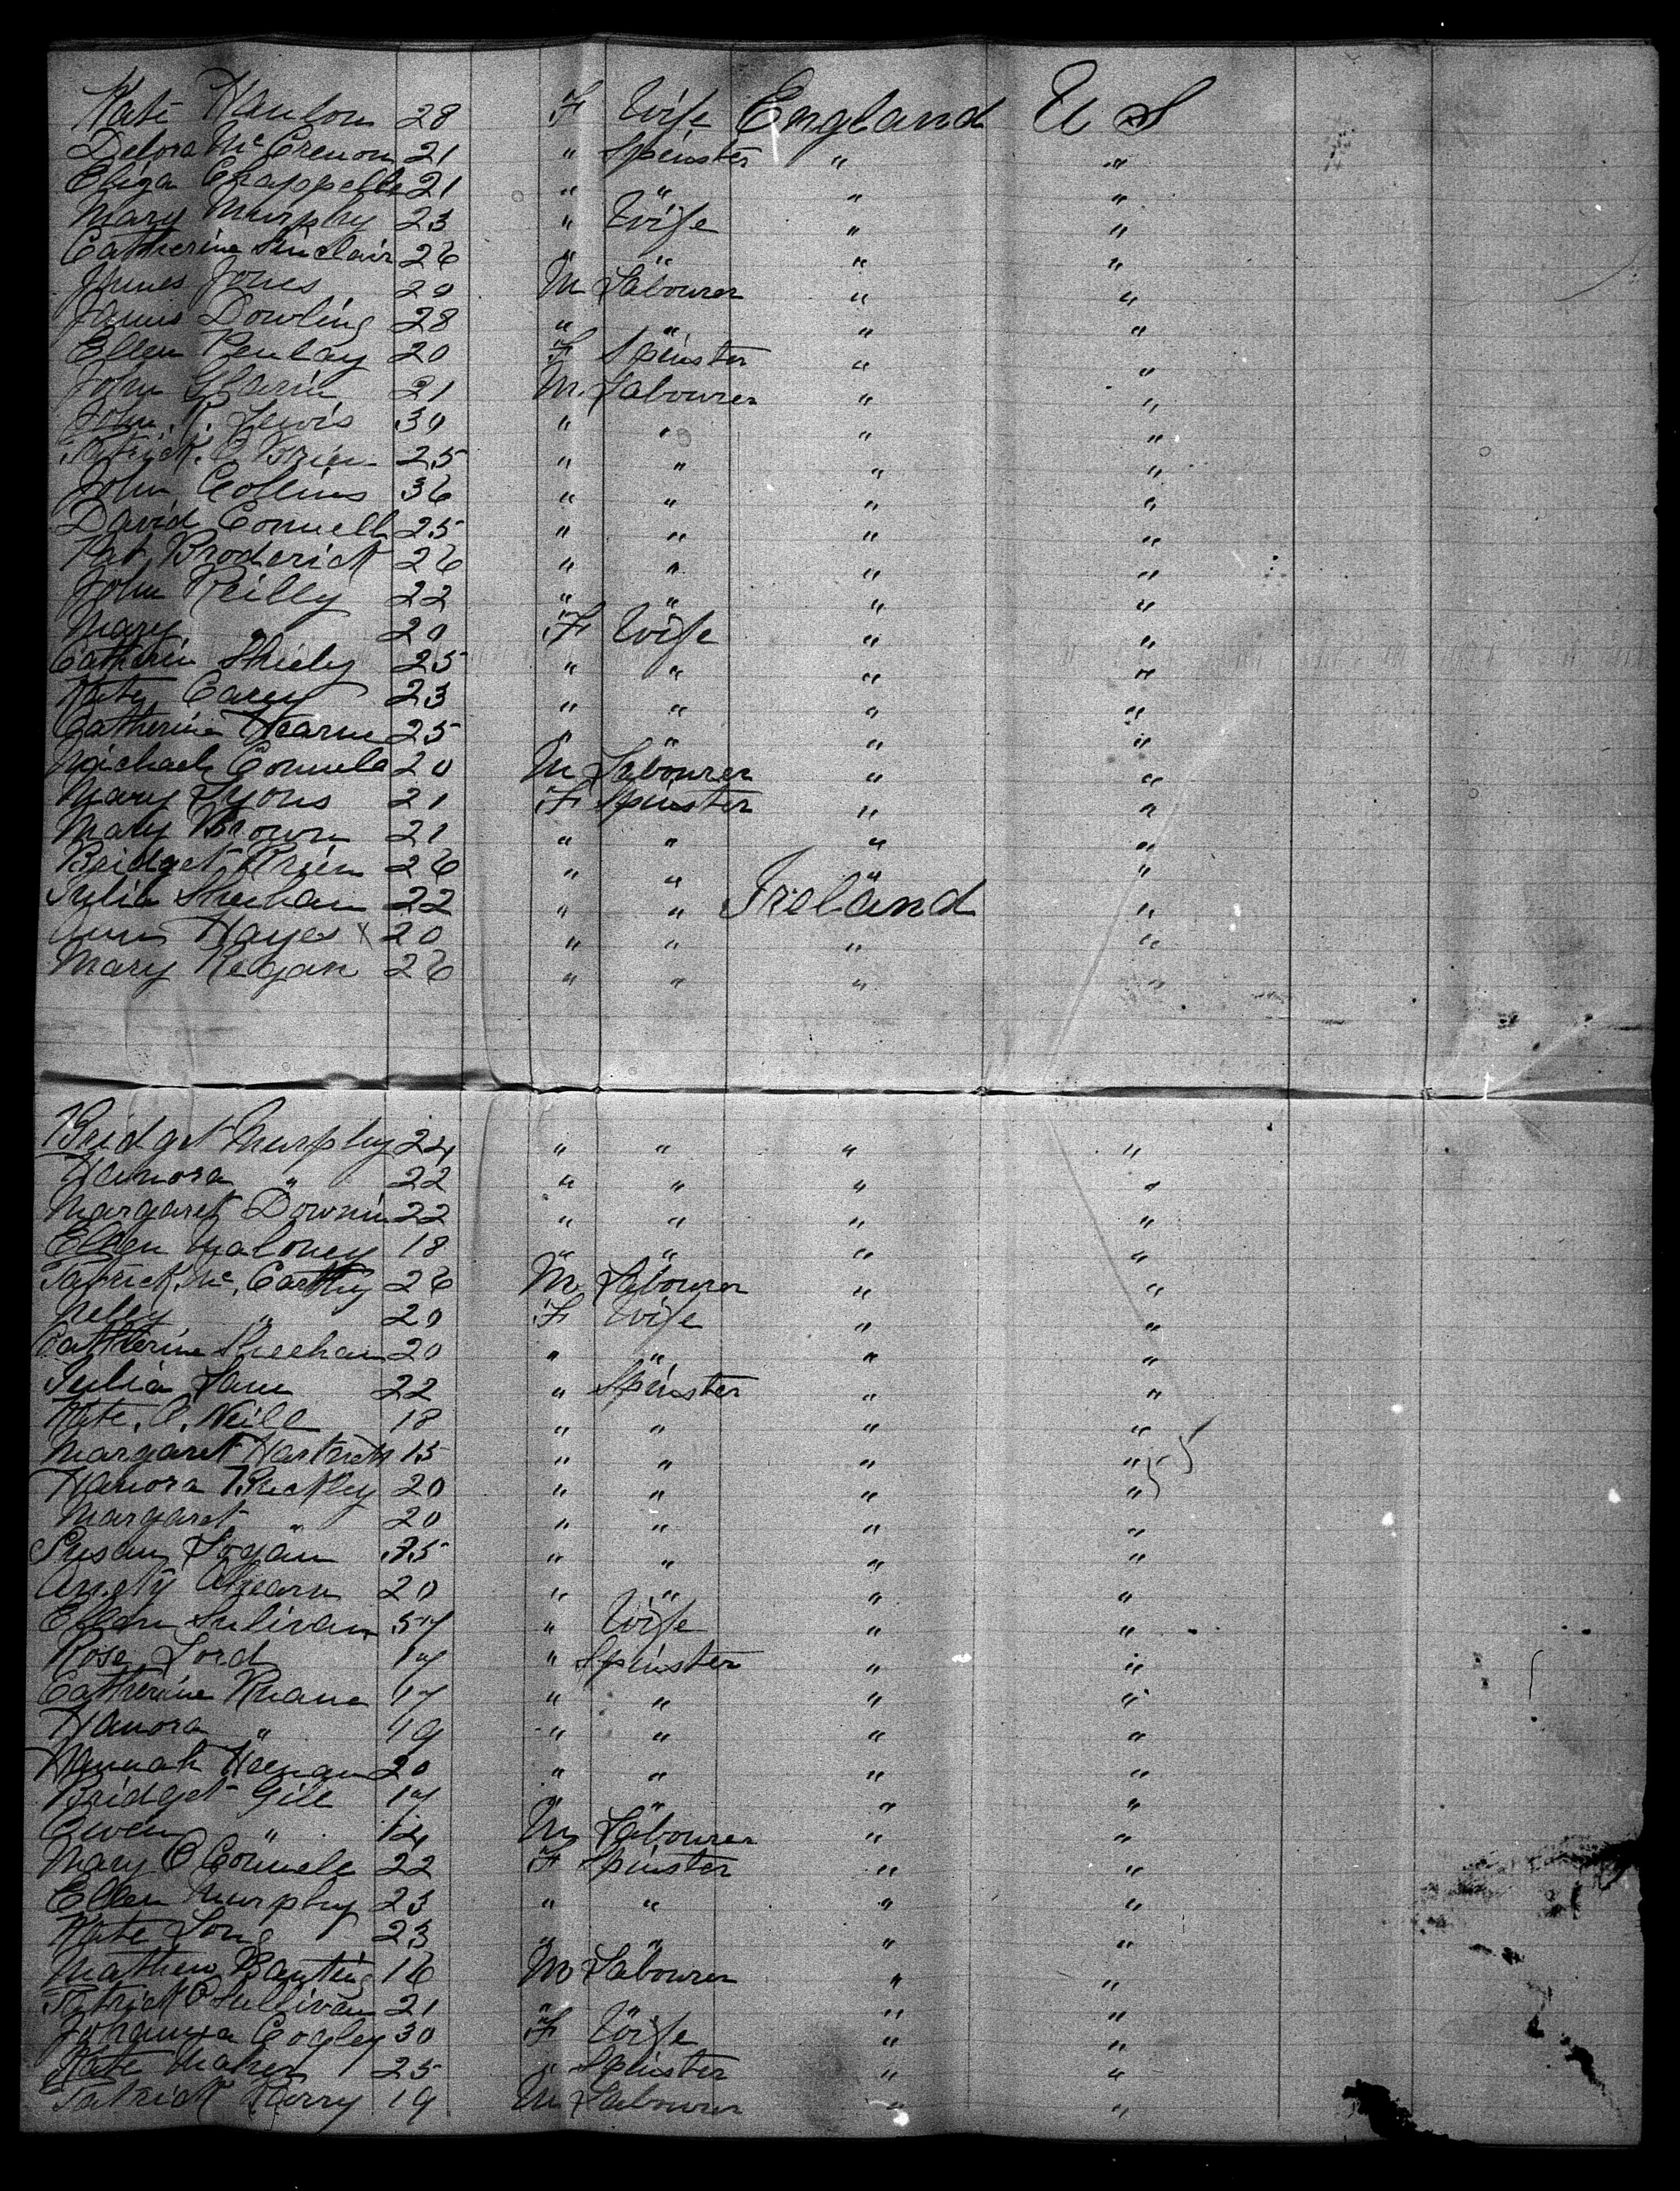 Kate Hanlon 28 F Wife England U S
Debora McCrenon 21 " Spinster " "
Eliza Chappelle 21 " " " "
Mary Murphy 23 " Wife " "
Catherine Sinclair 26 " " " "
James Jones 20 M Labourer " "
James Dowling 28 " " " "
Ellen Penlay 20 F Spinster " "
John 21 M. Labourer " "
John. R. Lewis 30 " " " "
Patrick. O Brien 25 " " " "
John Collins 36 " " " "
David Connell 25 " " " "
Pat Broderick 26 " " " "
John Reilly 22 " " " "
Mary " 20 F Wife " "
Catherin Shieby 25 " " " "
Katy Carey 23 " " " "
Catherine Hearne 25 " " " "
Michael Connele 20 M Labourer " "
Mary Lyons 21 F Spinster " "
Mary Brown 21 " " " "
Bridget Brien 26 " " " "
Julia Sheehan 22 " " Ireland "
Ann Hayes x 20 " " " "
Mary Regan 26 " " " "
Bridget Murphy 24 " " " "
Hannora " 22 " " " "
Margaret Downin 22 " " " "
Ellen Maloney 18 " " " "
Patrick. Mc. Carthy 26 M Labourer " "
Nelly " 20 F Wife " "
Catherine Sheehan 20 " " " "
Julia Lane 22 " Spinster " "
Kate. O. Neill 18 " " " "
Margaret 15 " " " "
Hanora Buckley 20 " " " "
Margaret " 20 " " " "
Susan Logan 35 " " " "
Ahearn 20 " " " "
Ellen Sulivan 57 " Wife " "
Rose Lord 17 " Spinster " "
Catherine Ruane 17 " " " "
Hanora " 19 " " " "
Hannah Heenan 20 " " " "
Bridget Gill 17 " " " "
Owen " 14 M Labourer " "
Mary O Connele 22 F Spinster " "
Ellen Murphy 23 " " " "
Kate Long 23 " " " "
Mathew Banting 16 M Labourer " "
Patrick O Sullivan 21 " " " "
Johanna Cogley 30 F Wife " "
Kate Maher 25 " Spinster " "
Patrick Harry 19 M Labourer " "